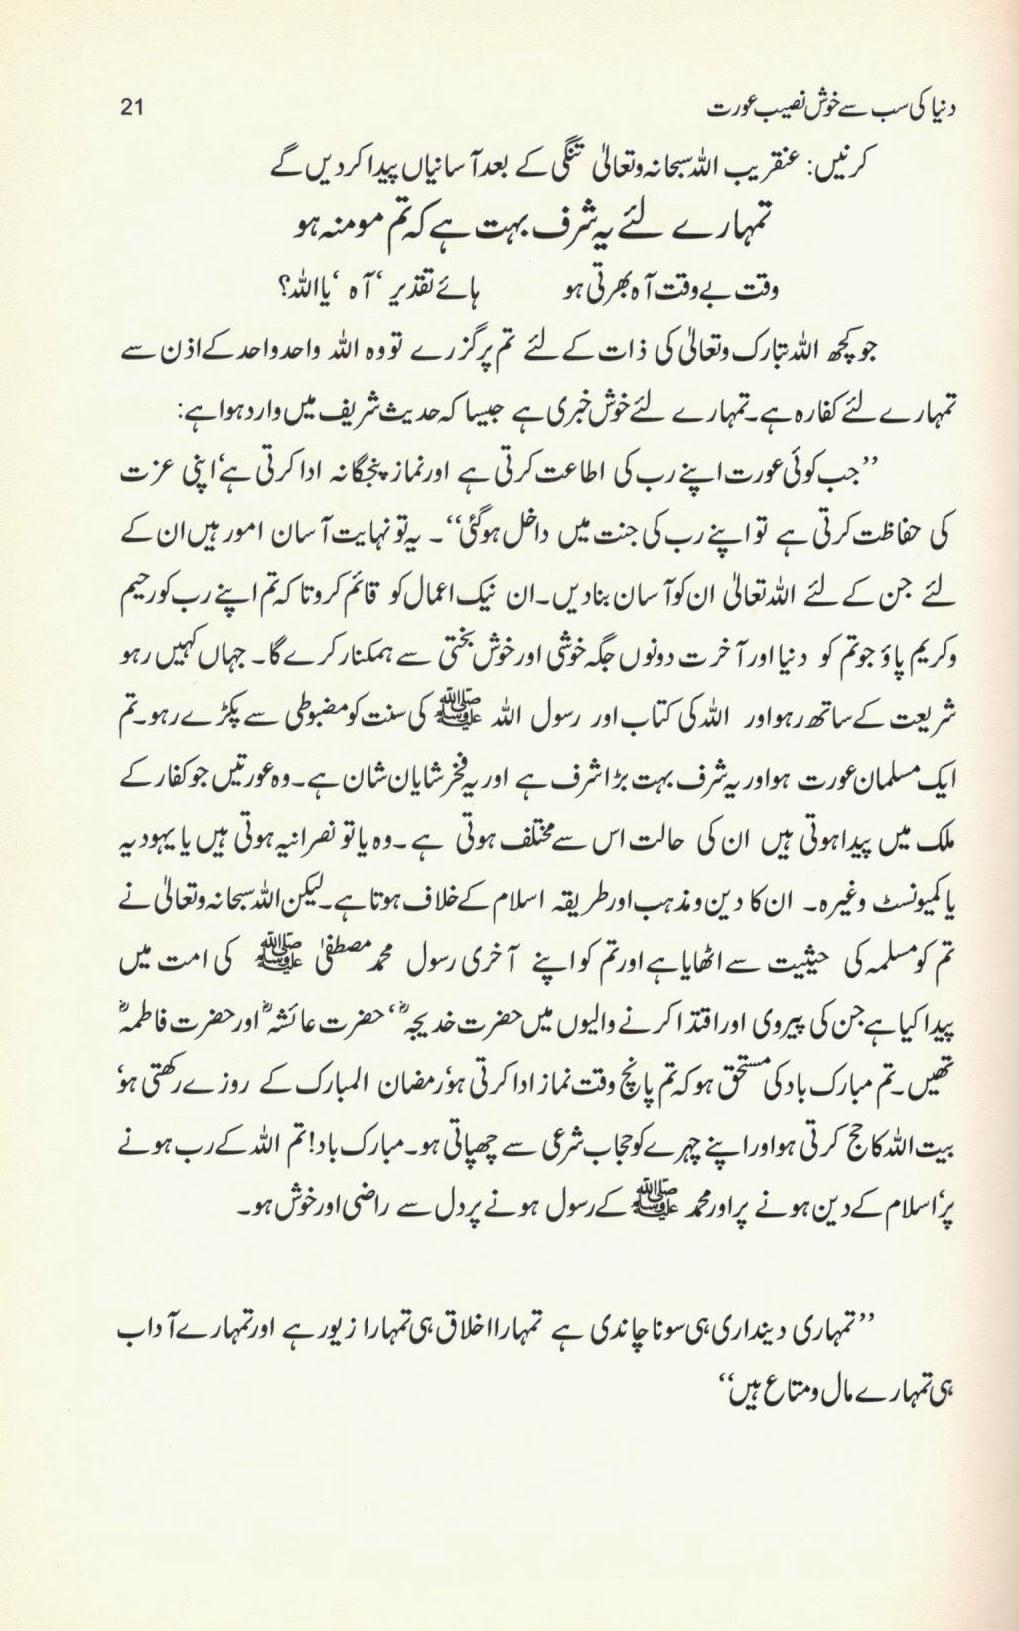 دنیا کی سب سے خوش نصیب عورت 21
کرنیں: عنقریب اللہ سبحانہ وتعالیٰ تنگی کے بعد آسانیاں پیدا کردیں گے
تمہارے لئے یہ شرف بہت ہے کہ تم مومنہ ہو
وقت بے وقت آہ بھرتی ہو ہائے تقدیر ‘آہ ‘یااللہ؟
جو کچھ اللہ تبارک وتعالیٰ کی ذات کے لئے تم پر گزرے تو وہ اللہ واحد واحد کے اذن سے
تمہارے لئے کفارہ ہے۔تمہارے لئے خوش خبری ہے جیسا کہ حدیث شریف میں وارد ہوا ہے:
’’جب کوئی عورت اپنے رب کی اطاعت کرتی ہے اور نماز پنجگانہ ادا کرتی ہے‘ اپنی عزت
کی حفاظت کرتی ہے تو اپنے رب کی جنت میں داخل ہوگئی‘‘۔ یہ تو نہایت آسان امور ہیں ان کے
لئے جن کے لئے اللہ تعالیٰ ان کو آسان بنادیں۔ان نیک اعمال کو قائم کرو تاکہ تم اپنے رب کو رحیم
وکریم پاؤ جو تم کو دنیا اور آخرت دونوں جگہ خوشی اور خوش بختی سے ہمکنار کرے گا۔ جہاں کہیں رہو
شریعت کے ساتھ رہو اور اللہ کی کتاب اور رسول اللہ ﷺ کی سنت کو مضبوطی سے پکڑے رہو۔تم
ایک مسلمان عورت ہو اور یہ شرف بہت بڑا شرف ہے اور یہ فخر شایان شان ہے۔وہ عورتیں جو کفار کے
ملک میں پیدا ہوتی ہیں ان کی حالت اس سے مختلف ہوتی ہے۔وہ یا تو نصرانیہ ہوتی ہیں یا یہودیہ
یا کمیونسٹ وغیرہ۔ ان کا دین ومذہب اور طریقہ اسلام کے خلاف ہوتا ہے۔لیکن اللہ سبحانہ وتعالیٰ نے
تم کو مسلمہ کی حیثیت سے اٹھایا ہے اور تم کو اپنے آخری رسول محمد مصطفیٰ ﷺ کی امت میں
پیدا کیا ہے جن کی پیروی اور اقتدا کرنے والیوں میں حضرت خدیجہؓ‘ حضرت عائشہؓ اور حضرت فاطمہؓ
تھیں۔تم مبارک باد کی مستحق ہو کہ تم پانچ وقت نماز ادا کرتی ہو‘ رمضان المبارک کے روزے رکھتی ہو‘
بیت اللہ کا حج کرتی ہو اور اپنے چہرے کو حجاب شرعی سے چھپاتی ہو۔مبارک باد! تم اللہ کے رب ہونے
پر‘ اسلام کے دین ہونے پر اور محمد ﷺ کے رسول ہونے پر دل سے راضی اور خوش ہو۔
’’تمہاری دینداری ہی سونا چاندی ہے تمہارا اخلاق ہی تمہارا زیور ہے اور تمہارے آداب
ہی تمہارے مال ومتاع ہیں‘‘